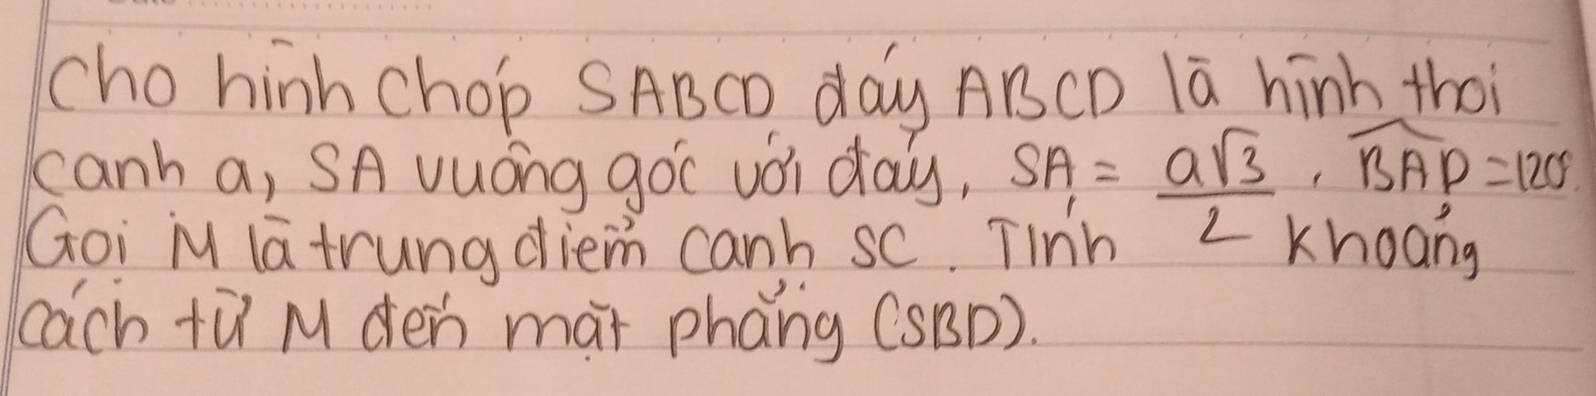 Cho hình chóp SABCD đáy ABCD là hình thoi
cạnh a, SA vuông góc với đáy, SA = a√3/2, BAD = 120°.
Gọi M là trung điểm cạnh SC. Tính khoảng
cách từ M đến mặt phẳng (SBD).